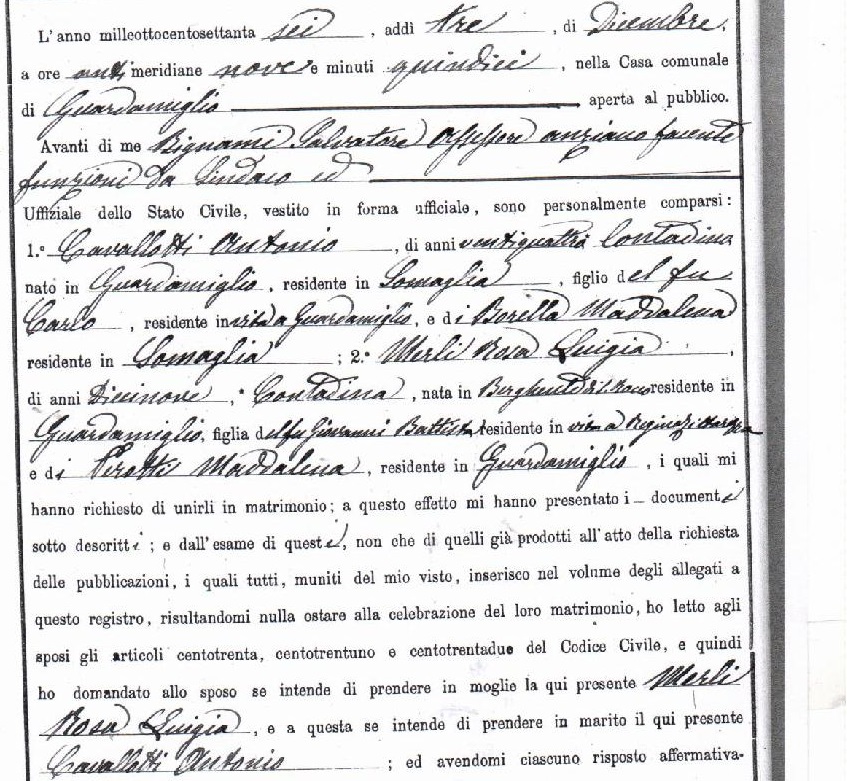 L'anno milleottocentosettanta sei, addì tre, di Dicembre,
a ore antimeridiane nove e minuti quindici, nella Casa comunale
di Guardamiglio aperta al pubblico.
Avanti di me Bignami Salvatore Assessore anziano facente
funzioni da Sindaco ed
Uffiziale dello Stato Civile, vestito in forma ufficiale, sono personalmente comparsi:
1.° Cavallotti Antonio, di anni ventiquattro Contadino
nato in Guardamiglio, residente in Somaglia, figlio del fu
Carlo, residente in vita a Guardamiglio, e di Borella Maddalena
residente in Somaglia; 2.° Merli Rosa Luigia,
di anni Diecinove, Contadina, nata in residente in
Guardamiglio, figlia del fu Giovanni Battista residente in vita a
e di Pirotti Maddalena, residente in Guardamiglio, i quali mi
hanno richiesto di unirli in matrimonio; a questo effetto mi hanno presentato i documenti
sotto descritti; e dall'esame di questi, non che di quelli già prodotti all'atto della richiesta
delle pubblicazioni, i quali tutti, muniti del mio visto, inserisco nel volume degli allegati a
questo registro, risultandomi nulla ostare alla celebrazione del loro matrimonio, ho letto agli
sposi gli articoli centotrenta, centotrentuno e centotrentadue del Codice Civile, e quindi
ho domandato allo sposo se intende di prendere in moglie la qui presente Merli
Rosa Luigia, e a questa se intende di prendere in marito il qui presente
Cavallotti Antonio; ed avendomi ciascuno risposto affermativa-